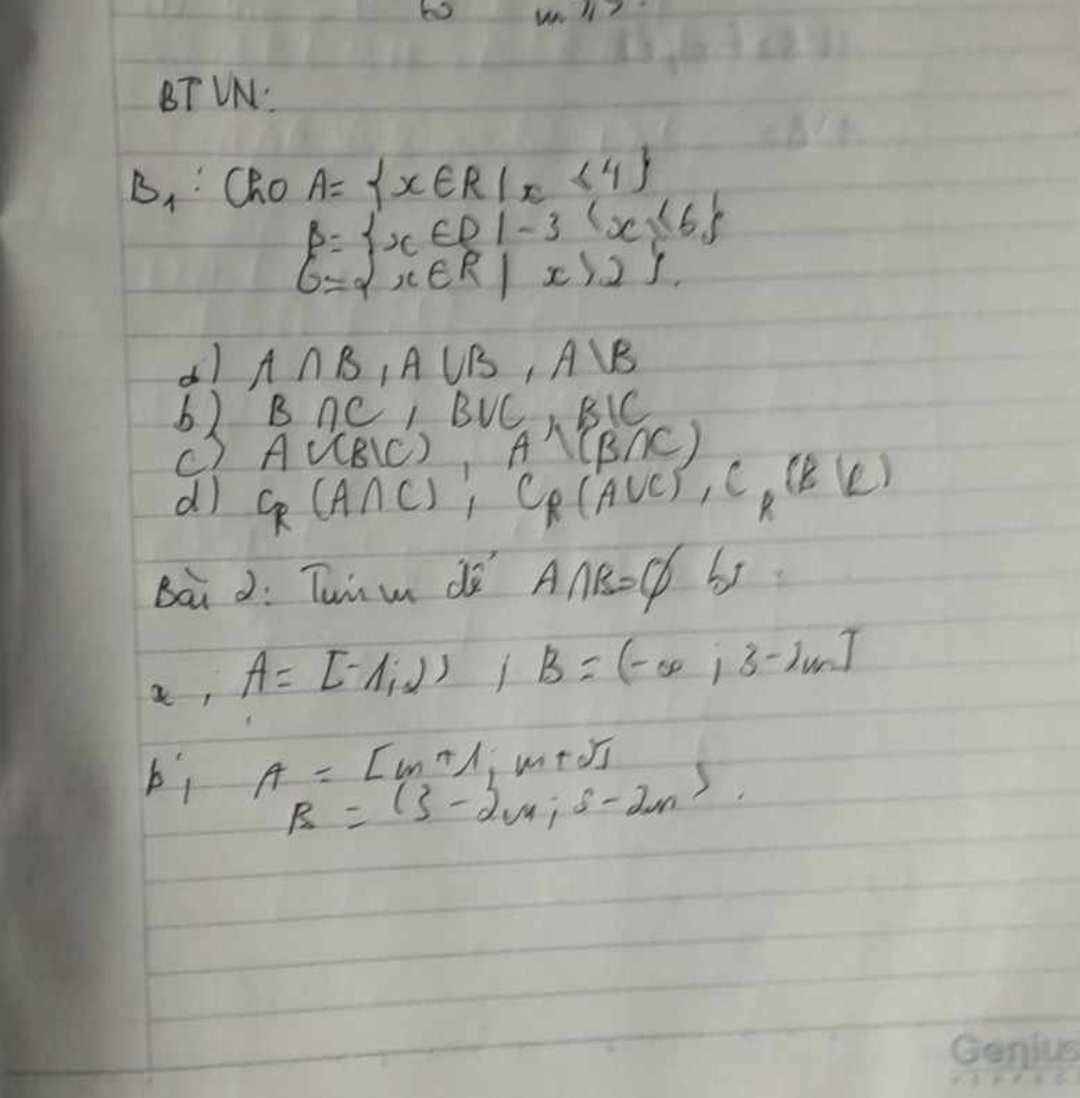 BTVN:
B₁: Cho A = {x ∈ R | x < 4}
B = {x ∈ R | -3 < x ≤ 6}
C = { x ∈ R | x > 2 }.
a) A ∩ B, A ∪ B, A \ B
b) B ∩ C, B ∪ C, B \ C
c) A ∪ (B \ C), A \ (B ∩ C)
d) C_R (A ∩ C); C_R (A ∪ C), C_R (B \ C)
Bài 2: Tìm m để A ∩ B = ∅
A = [-1; 2) ; B = (-∞ ; 3 - 2m]
b, A = [m + 1; m + 2]
B = (3 - 2m; 5 - 2m).
Genius